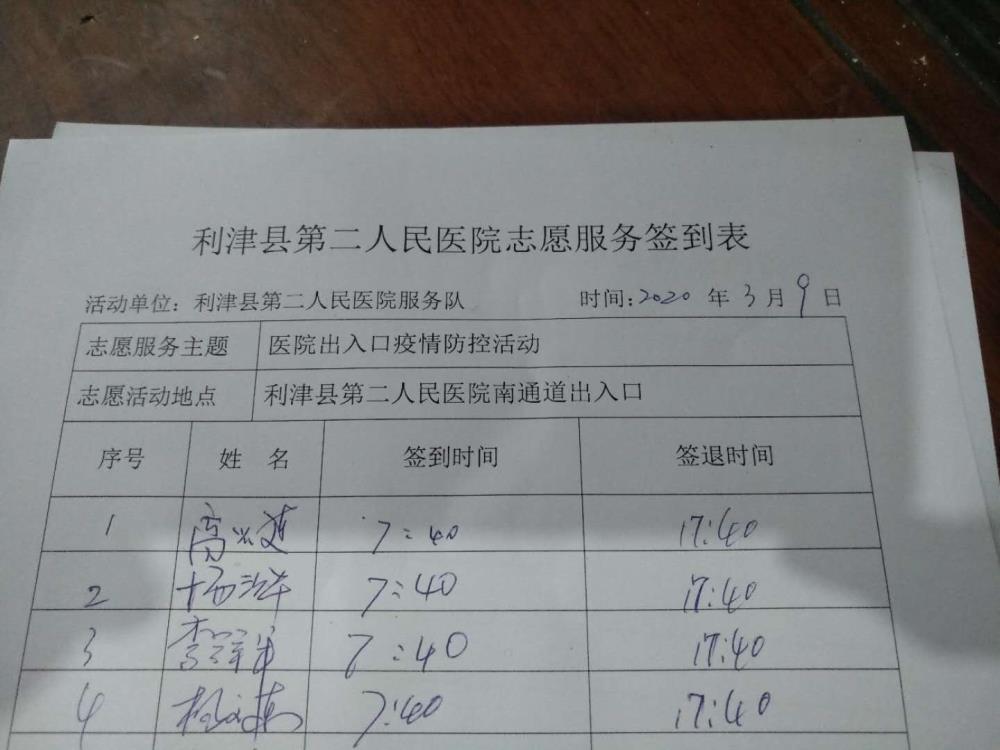 利津县第二人民医院志愿服务签到表
活动单位：利津县第二人民医院服务队 时间：2020 年 3 月 9 日
志愿服务主题 医院出入口疫情防控活动
志愿活动地点 利津县第二人民医院南通道出入口
序号 姓 名 签到时间 签退时间
1 7:40 17:40
2 7:40 17:40
3 7:40 17:40
4 7:40 17:40